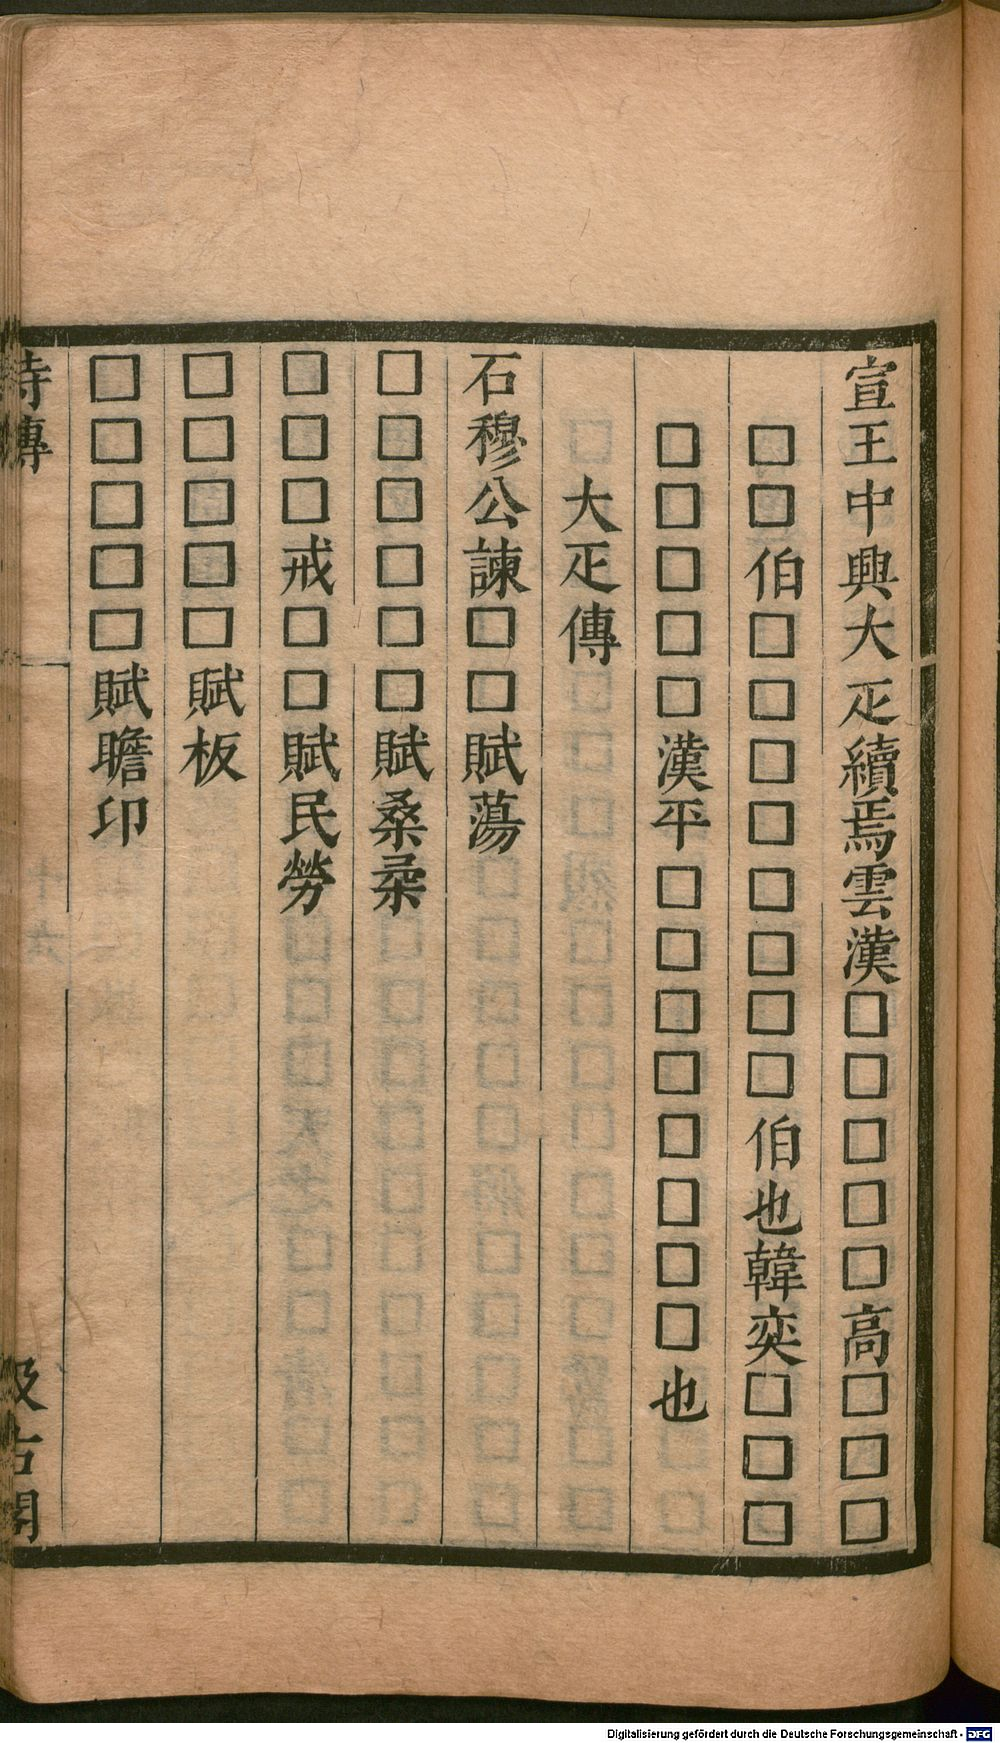 宣王中興大疋續焉雲漢□□□□□高□□□
□□伯□□□□□□□□伯也韓奕□□□
□□□□□漢平□□□□□□□□也
大疋傳
石穆公諫□□賦蕩
□□□□□□賦桑柔
□□□戒□□賦民勞
□□□□□賦板
□□□□□賦瞻印
詩傳
汲古閣
Digitalisierung gefördert durch die Deutsche Forschungsgemeinschaft - DFG